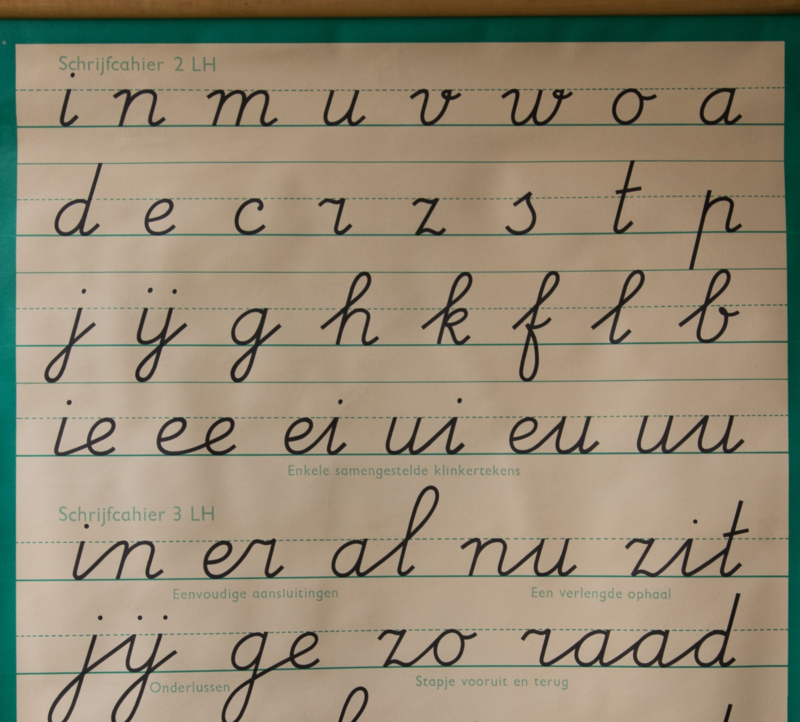 Schrijfcahier 2 LH
i n m u v w o a
d e c r z s t p
j ij g h k f l b
ie ee ei ui eu uu
Enkele samengestelde klinkertekens
Schrijfcahier 3 LH
in er al nu zit
Eenvoudige aansluitingen Een verlengde ophaal
jij ge zo raad
Onderlussen Stapje vooruit en terug